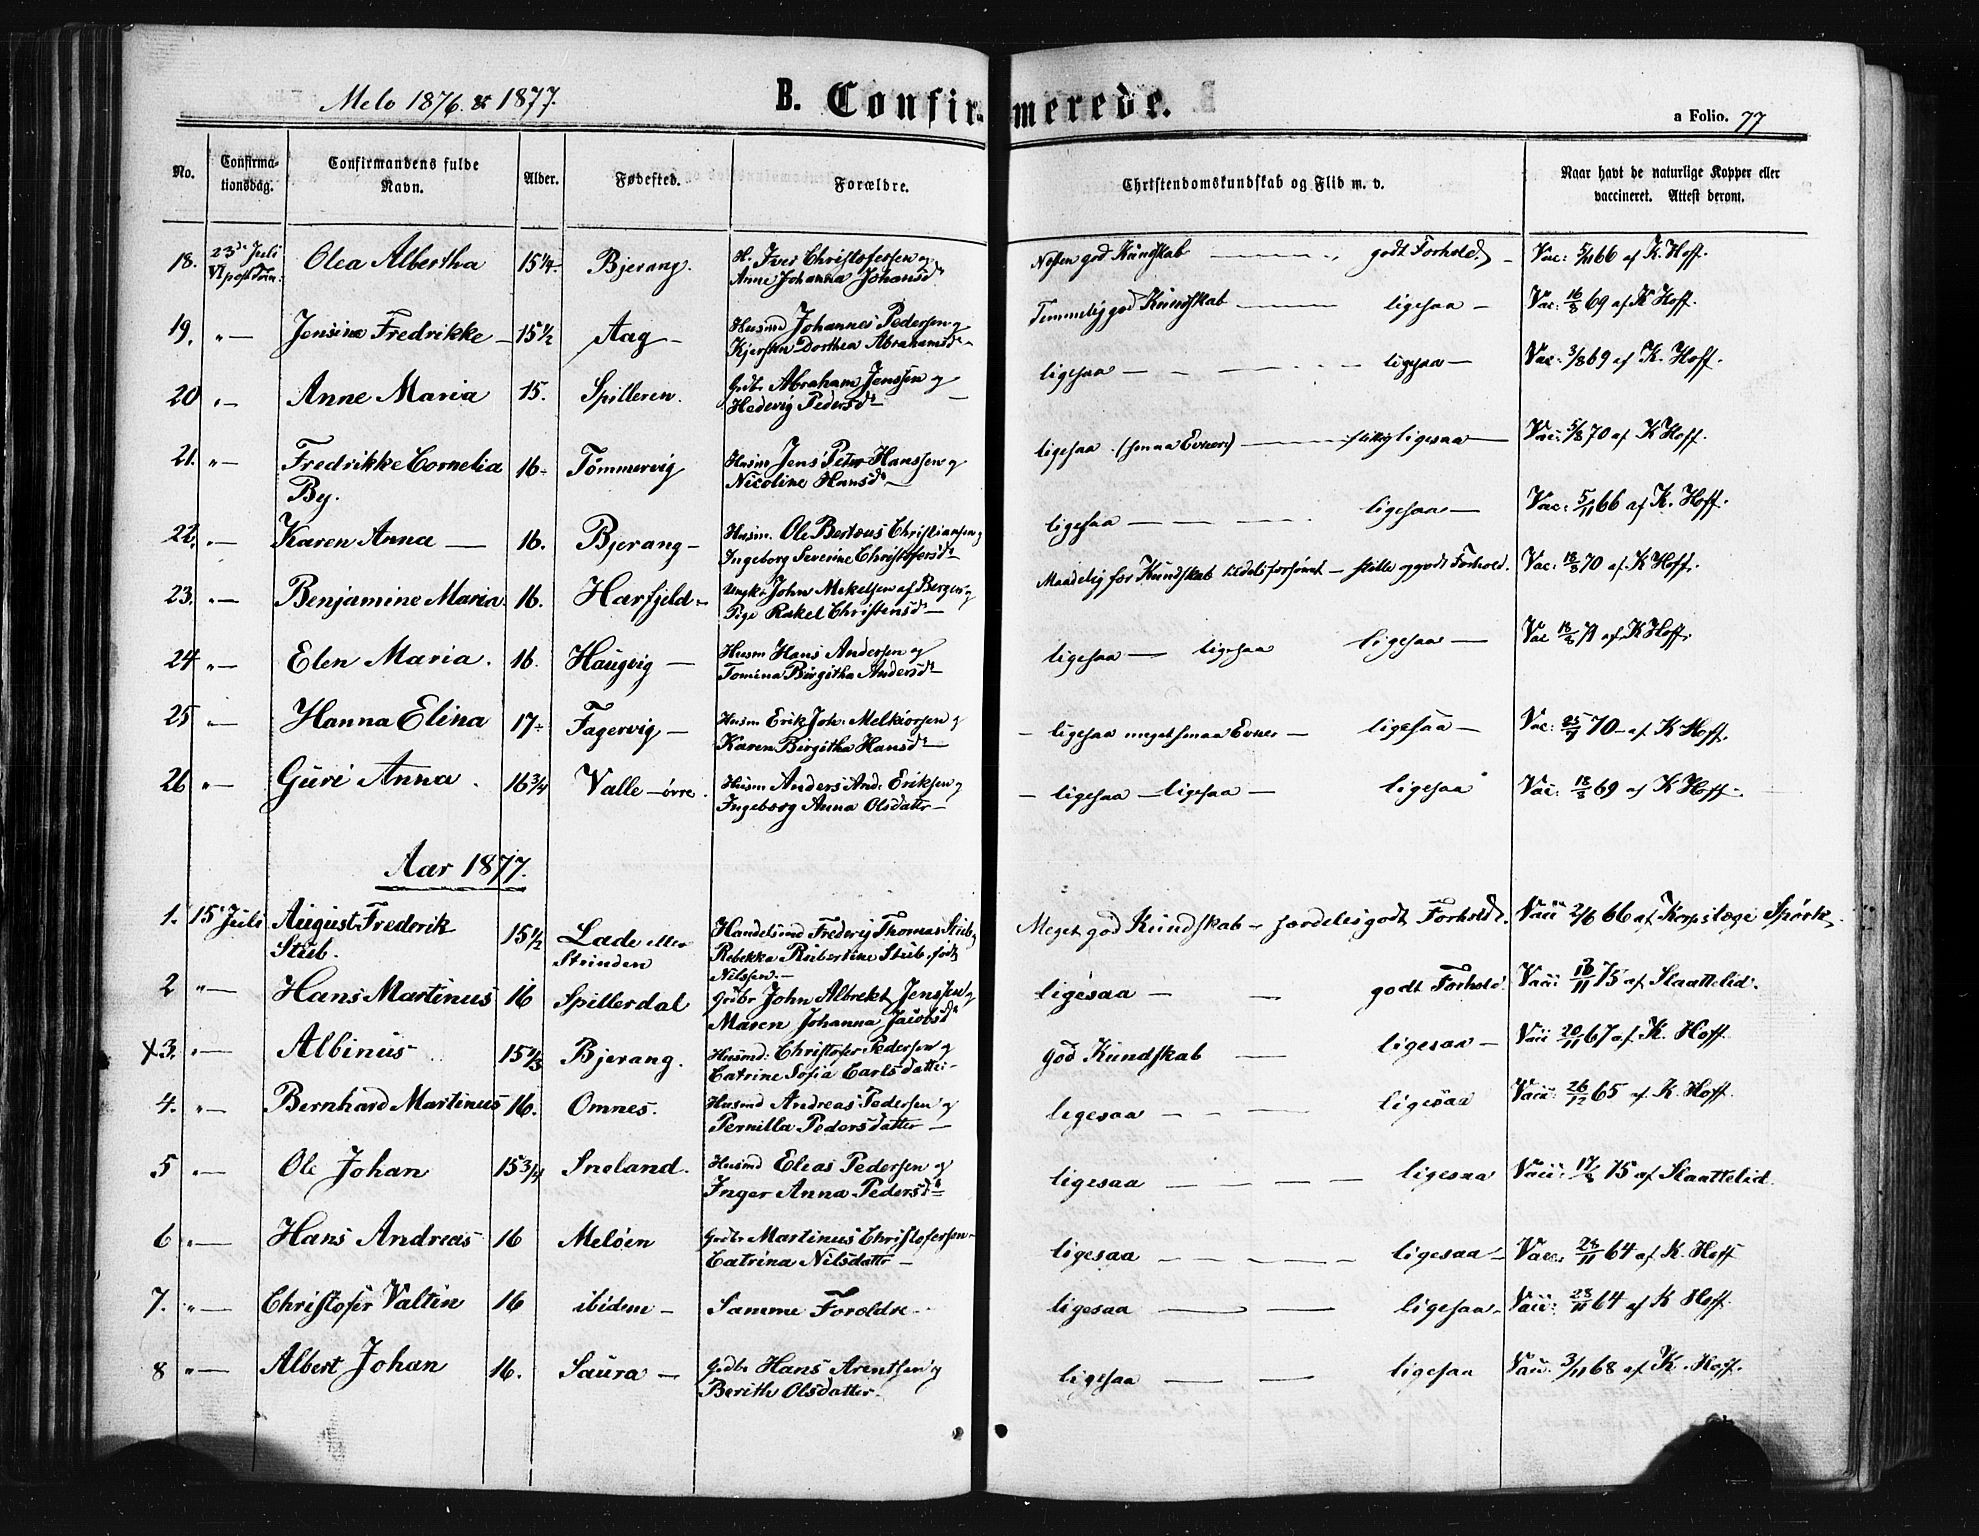 Melø 1876 & 1877.
B. Confirmerede.
a Folio. 77
No.
Confirma-
tionsdag.
Confirmandens fulde
Navn.
Alder.
Fødested.
Forældre.
Christendomskundskab og Flid m. v.
Naar havt de naturlige Kopper eller
vaccineret. Attest derom.
18. 23de Juli Olea Albertha 15¼ Bjerang. H. Iver Christofersen og Næsten god Kundskab — godt Forhold — Vac: 5/11 66 af K. Hoff.
VI post Trin: Anne Johanna Johansd
19. " — Jensine Fredrikke — 15½ Aag — Husmd Johannes Pedersen og Temmelig god Kundskab — ligesaa — Vac: 16/8 69 af K Hoff.
Kjersten Dorthea Abrahamsd —
20 " — Anne Maria 15. Spilleren. Grdbr Abraham Jenssen og ligesaa — ligesaa — Vac: 3/8 69 af K. Hoff.
Hedevig Pedersd —
21. " — Fredrikke Cornelia 16 Tømmervig Husm Jens Peter Hanssen og ligesaa (smaa Evner) — flittig ligesaa — Vac: 5/8 70 af K Hoff.
By. Nicoline Hansd —
22. " — Karen Anna — 16. Bjerang — Husm. Ole Bertæus Christiansen og ligesaa — ligesaa — Vac: 5/11 66 af K. Hoff.
Ingeborg Severine Christofersd
23. " — Benjamine Maria 16. Harfjeld — Ungk: John Mikelsen af Bergen og Maadelig for Kundskab tildels forsømt — stille og godt Forhold. Vac: 18/8 70 af K Hoff.
Pige Rakel Christensd —
24 " — Elen Maria. 16. Haugvig — Husm Hans Andersen og ligesaa — ligesaa ligesaa — Vac 18/8 71 af K Hoff.
Tomina Birgitha Andersd —
25 " — Hanna Elina 17 Fagervig — Husm Erik Joh: Melkiorsen og — ligesaa meget smaa Evner — ligesaa — Vac: 70 — af K Hoff.
Karen Birgitha Hansd —
26 " — Guri Anna. 16¾ Valle — øvre. Husm Anders And: Eriksen og — ligesaa — ligesaa — ligesaa Vac: 18/8 69 af K Hoff.
Ingeborg Anna Olsdatter —
Aar 1877.
1. 15 Juli August Frederik 15½ Lade eller Handelsmd Frederig Thomas Stub og Meget god Kundskab — særdeles godt Forhold. Vacc 2/6 66 af Korpslæge Spørk.
Stub. Strinden Rebekka Robertine Stub, født
Nilssen. —
2 " — Hans Martinus 16 Spillerdal Grdbr John Albrekt Jenssen og ligesaa — — godt Forhold. Vacc: 75 af Slaattelid.
Maren Johanna Jacobsd
x3. " — Albinus 15⅓ Bjerang. Husmd: Christofer Pedersen og god Kundskab — ligesaa — Vacc 20/11 67 af K. Hoff.
Catrine Sofia Carlsdatter —
4. " — Bernhard Martinus 16. Omnes. Husmd Andreas Pedersen og ligesaa — ligesaa Vacc: 26/12 65 af K. Hoff.
Pernilla Pedersdatter —
5 " — Ole Johan 15¾ Sneland. Husmd Elias Pedersen og ligesaa — ligesaa Vacc: 75 af Slaattelid.
Inger Anna Pedersd
6 " — Hans Andreas 16 Meløen Grdbr Martinus Christofersen — ligesaa — ligesaa — Vacc. 28/11 64 af K. Hoff
Catrina Nilsdatter —
7. " — Christofer Valtin 16 ibidem — Samme Forældre — ligesaa — ligesaa — Vacc: 28/11 64 af K Hoff.
8 " — Albert Johan 16. Saura — Grdbr Hans Arentsen og ligesaa — ligesaa Vacc: 3/11 68 af K. Hoff.
Berithe Olsdatter.